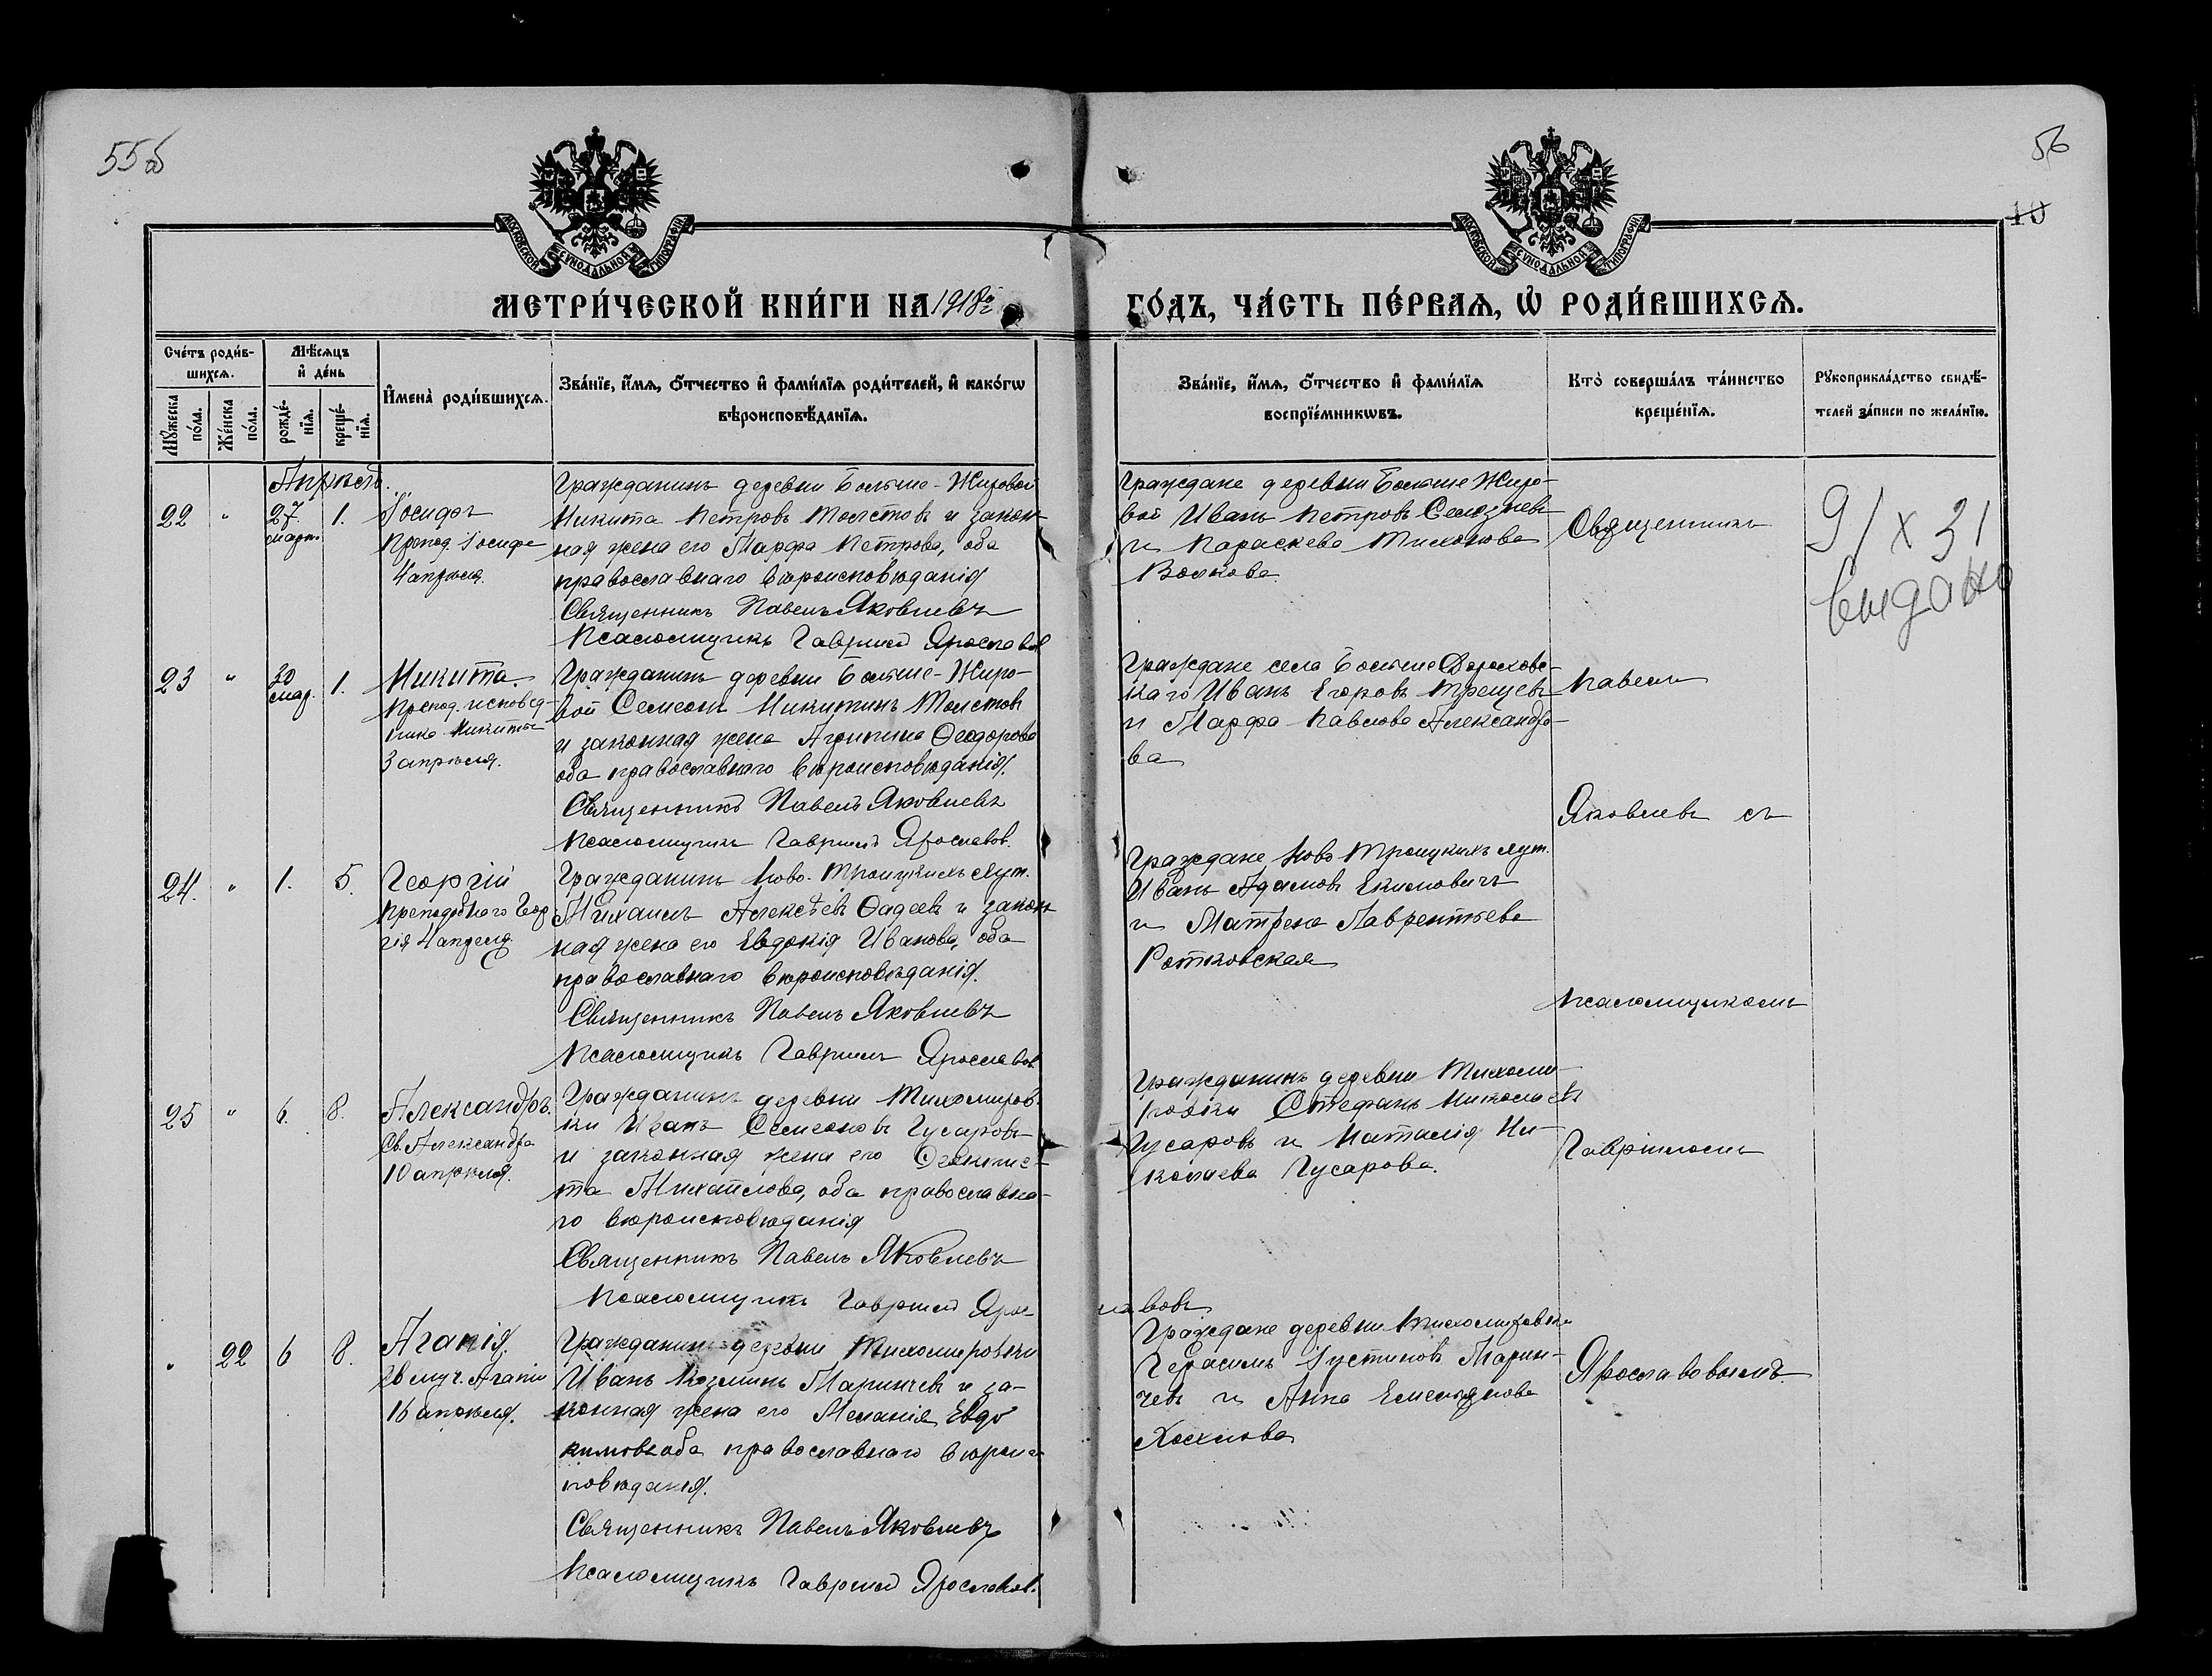 55об
56
10
МОСКОВСКОЙ СѴНОДАЛЬНОЙ ТИПОГРАФІИ
МОСКОВСКОЙ СѴНОДАЛЬНОЙ ТИПОГРАФІИ
МЕТРИ́ЧЕСКОЙ КНИ́ГИ НА 1918й ГО́ДЪ, ЧА́СТЬ ПЕ́РВАѦ, Ѡ҆ РОДИ́ВШИХСѦ.
Сче́тъ роди́в-
шихсѧ.
Мѣ́сѧцъ
и҆ де́нь
И҆мена̀ роди́вшихсѧ.
Зва́нїе, и҆́мѧ, ѻ҆́тчество и҆ фами́лїѧ роди́телей, и҆ како́гѡ
вѣроисповѣ́данїѧ.
Зва́нїе, и҆́мѧ, ѻ҆́тчество и҆ фами́лїѧ
воспрїе́мникѡвъ.
Кто̀ соверша́лъ та́инство
креще́нїѧ.
Рꙋкоприкла́дство свидѣ́-
телей за́писи по жела́нїю.
Мꙋ́жеска
по́ла.
Же́нска
по́ла.
рожде́-
нїѧ.
креще́-
нїѧ.
Апрѣль.
22 " 27 март. 1.
Іосифъ
Препод. Іосифа
4 апрѣля.
Гражданинъ деревни Больше-Жировой
Никита Петровъ Толстовъ и закон-
ная жена его Марфа Петрова, оба
православнаго вѣроисповѣданія
Священникъ Павелъ Яковлевъ
Псаломщикъ Гавриил Ярославов
Граждане деревни Больше Жиро-
вой Иванъ Петровъ Селюзневъ
и Параскева Тихонова
Волкова
Священникъ
91 х 31
выдано
23 " 30 мар. 1.
Никита
Препод. исповед-
ника Никиты
3 апрѣля.
Гражданинъ деревни Больше-Жиро-
вой Семеонъ Никитинъ Толстовъ
и законная жена Агрипина Ѳеодорова
оба православнаго вѣроисповѣданія.
Священникъ Павелъ Яковлевъ
Псаломщикъ Гавриилъ Ярославов.
Граждане села Больше Дороховс-
каго Иванъ Егоровъ Трещевъ
и Марфа Павлова Александро-
ва
Павелъ
Яковлевъ съ
24. " 1. 5.
Георгій
Преподобнаго Геор
гія 4 апреля
Гражданинъ Ново-Троицкихъ хут.
Михаилъ Алексѣевъ Ѳадеевъ и закон
ная жена его Евдокія Иванова, оба
православнаго вѣроисповѣданія.
Священникъ Павелъ Яковлевъ
Псаломщикъ Гавриилъ Ярославов
Граждане Ново Троицкихъ хут.
Иванъ Адамовъ Екимовичъ
и Матрена Лаврентьева
Ротковская
Псаломщикомъ
25 " 6. 8.
Александръ.
Св. Александра
10 апрѣля.
Гражданинъ деревни Тихомиров-
ки Иванъ Семеоновъ Гусаровъ
и законная жена его Ѳеоктис-
та Михайлова, оба православна-
го вѣроисповѣданія
Священникъ Павелъ Яковлевъ
Псаломщикъ Гавриил Ярос-
лавовъ
Гражданинъ деревни Тихоми-
ровки Стефанъ Николаевъ
Гусаровъ и Наталія Ни-
колаева Гусарова.
Гавріиломъ
" 22 6 8.
Агапія.
Св муч. Агапіи
16 апрѣля.
Гражданинъ деревни Тихомировки
Иванъ Козминъ Маринчевъ и за-
конная жена его Меланія Евдо
кимова оба православнаго вѣроис
повѣданія.
Священникъ Павелъ Яковлевъ
Псаломщикъ Гавриил Ярославов.
Граждане деревни Тихомировки
Герасимъ Іустиновъ Марин-
чевъ и Анна Емельянова
Хохлова
Ярославовымъ